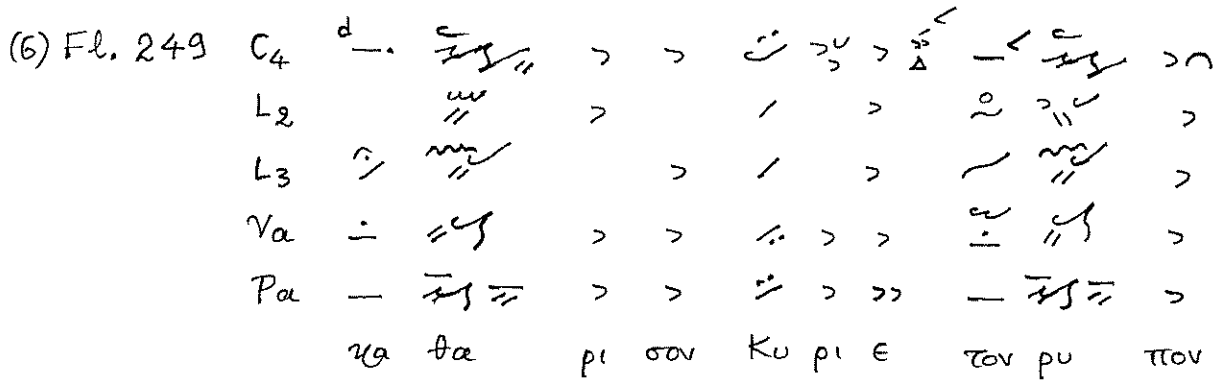 (6) Fl. 249 C4
L2
L3
Va
Pa
κα θα ρι σον Κυ ρι ε τον ρυ πον